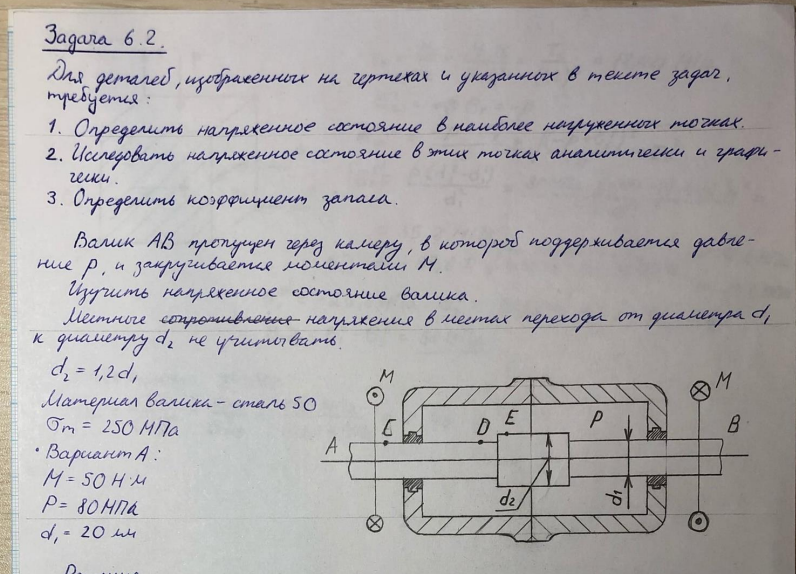 Задача 6.2.
Для деталей, изображенных на чертежах и указанных в тексте задач,
требуется:
1. Определить напряженное состояние в наиболее нагруженных точках.
2. Исследовать напряженное состояние в этих точках аналитически и графи-
чески.
3. Определить коэффициент запаса.
Валик AB пропущен через камеру, в которой поддерживается давле-
ние P, и закручивается моментами M.
Изучить напряженное состояние валика.
Местные сопротивления напряжения в местах перехода от диаметра d₁
к диаметру d₂ не учитывать.
d₂ = 1,2d₁
Материал валика - сталь 50
σт = 250 МПа
Вариант А:
M = 50 Н·м
P = 80 МПа
d₁ = 20 мм
M
M
A
C
D
E
P
B
d₂
d₁